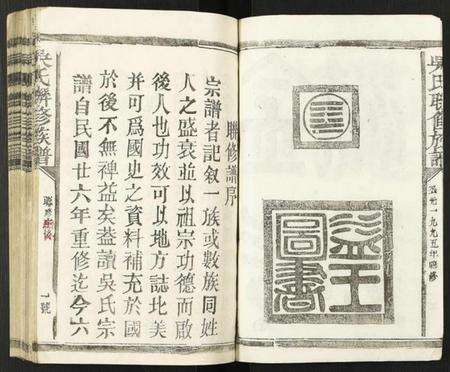 吳氏聯修族譜
公元一九九五年聯修
益王
圖書
聯修譜序
宗譜者記叙一族或數族同姓
人之盛衰並以祖宗功德而啟
後人也功效可以地方誌比美
并可爲國史之資料補充於國
於後不無裨益矣益讀吳氏宗
譜自民國廿六年重修迄今六
吳氏聯修族譜